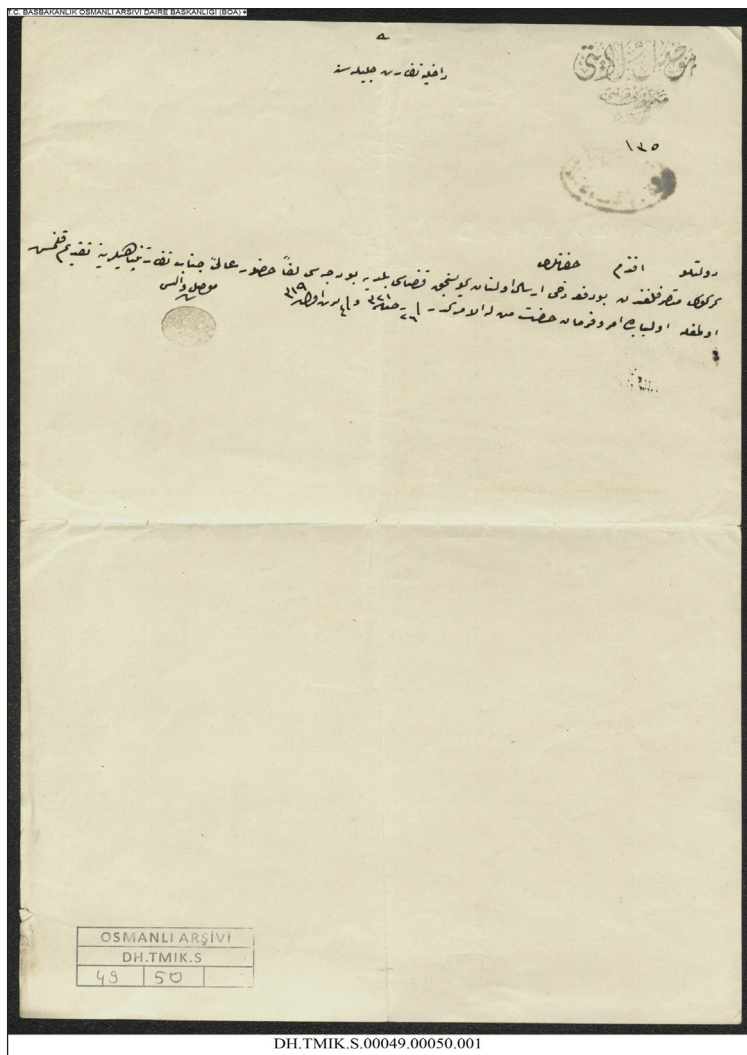 T.C. BAŞBAKANLIK OSMANLI ARŞİVİ DAİRE BAŞKANLIĞI (BOA)
موصل ولايتى
مكتوبى قلمى
داخليه نظارت جليله سنه
١٣٥
دولتلو افندم حضرتلرى
كركوك متصرفلغندن بو دفعه دخى ارسال اولنان كويسنجق قضاسى بلديه بودجه سى لفاً حضور عالئ جناب نظارتپناهيلرينه تقديم قلنمش
اولمغله اولبابده امر و فرمان حضرت من له الامركدر
موصل واليسى
OSMANLI ARŞİVİ
DH.TMIK.S
49 50
DH.TMIK.S.00049.00050.001